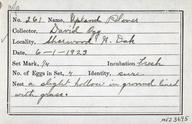 No. 261. Name, Upland Plover
Collector, David Egg
Locality, Sherwood N. Dak
Date, 6-1-1923
Set Mark, 1/4 Incubation fresh
No. of Eggs in Set, 4 Identity, sure
Nest a slight hollow in ground lined
with grass.